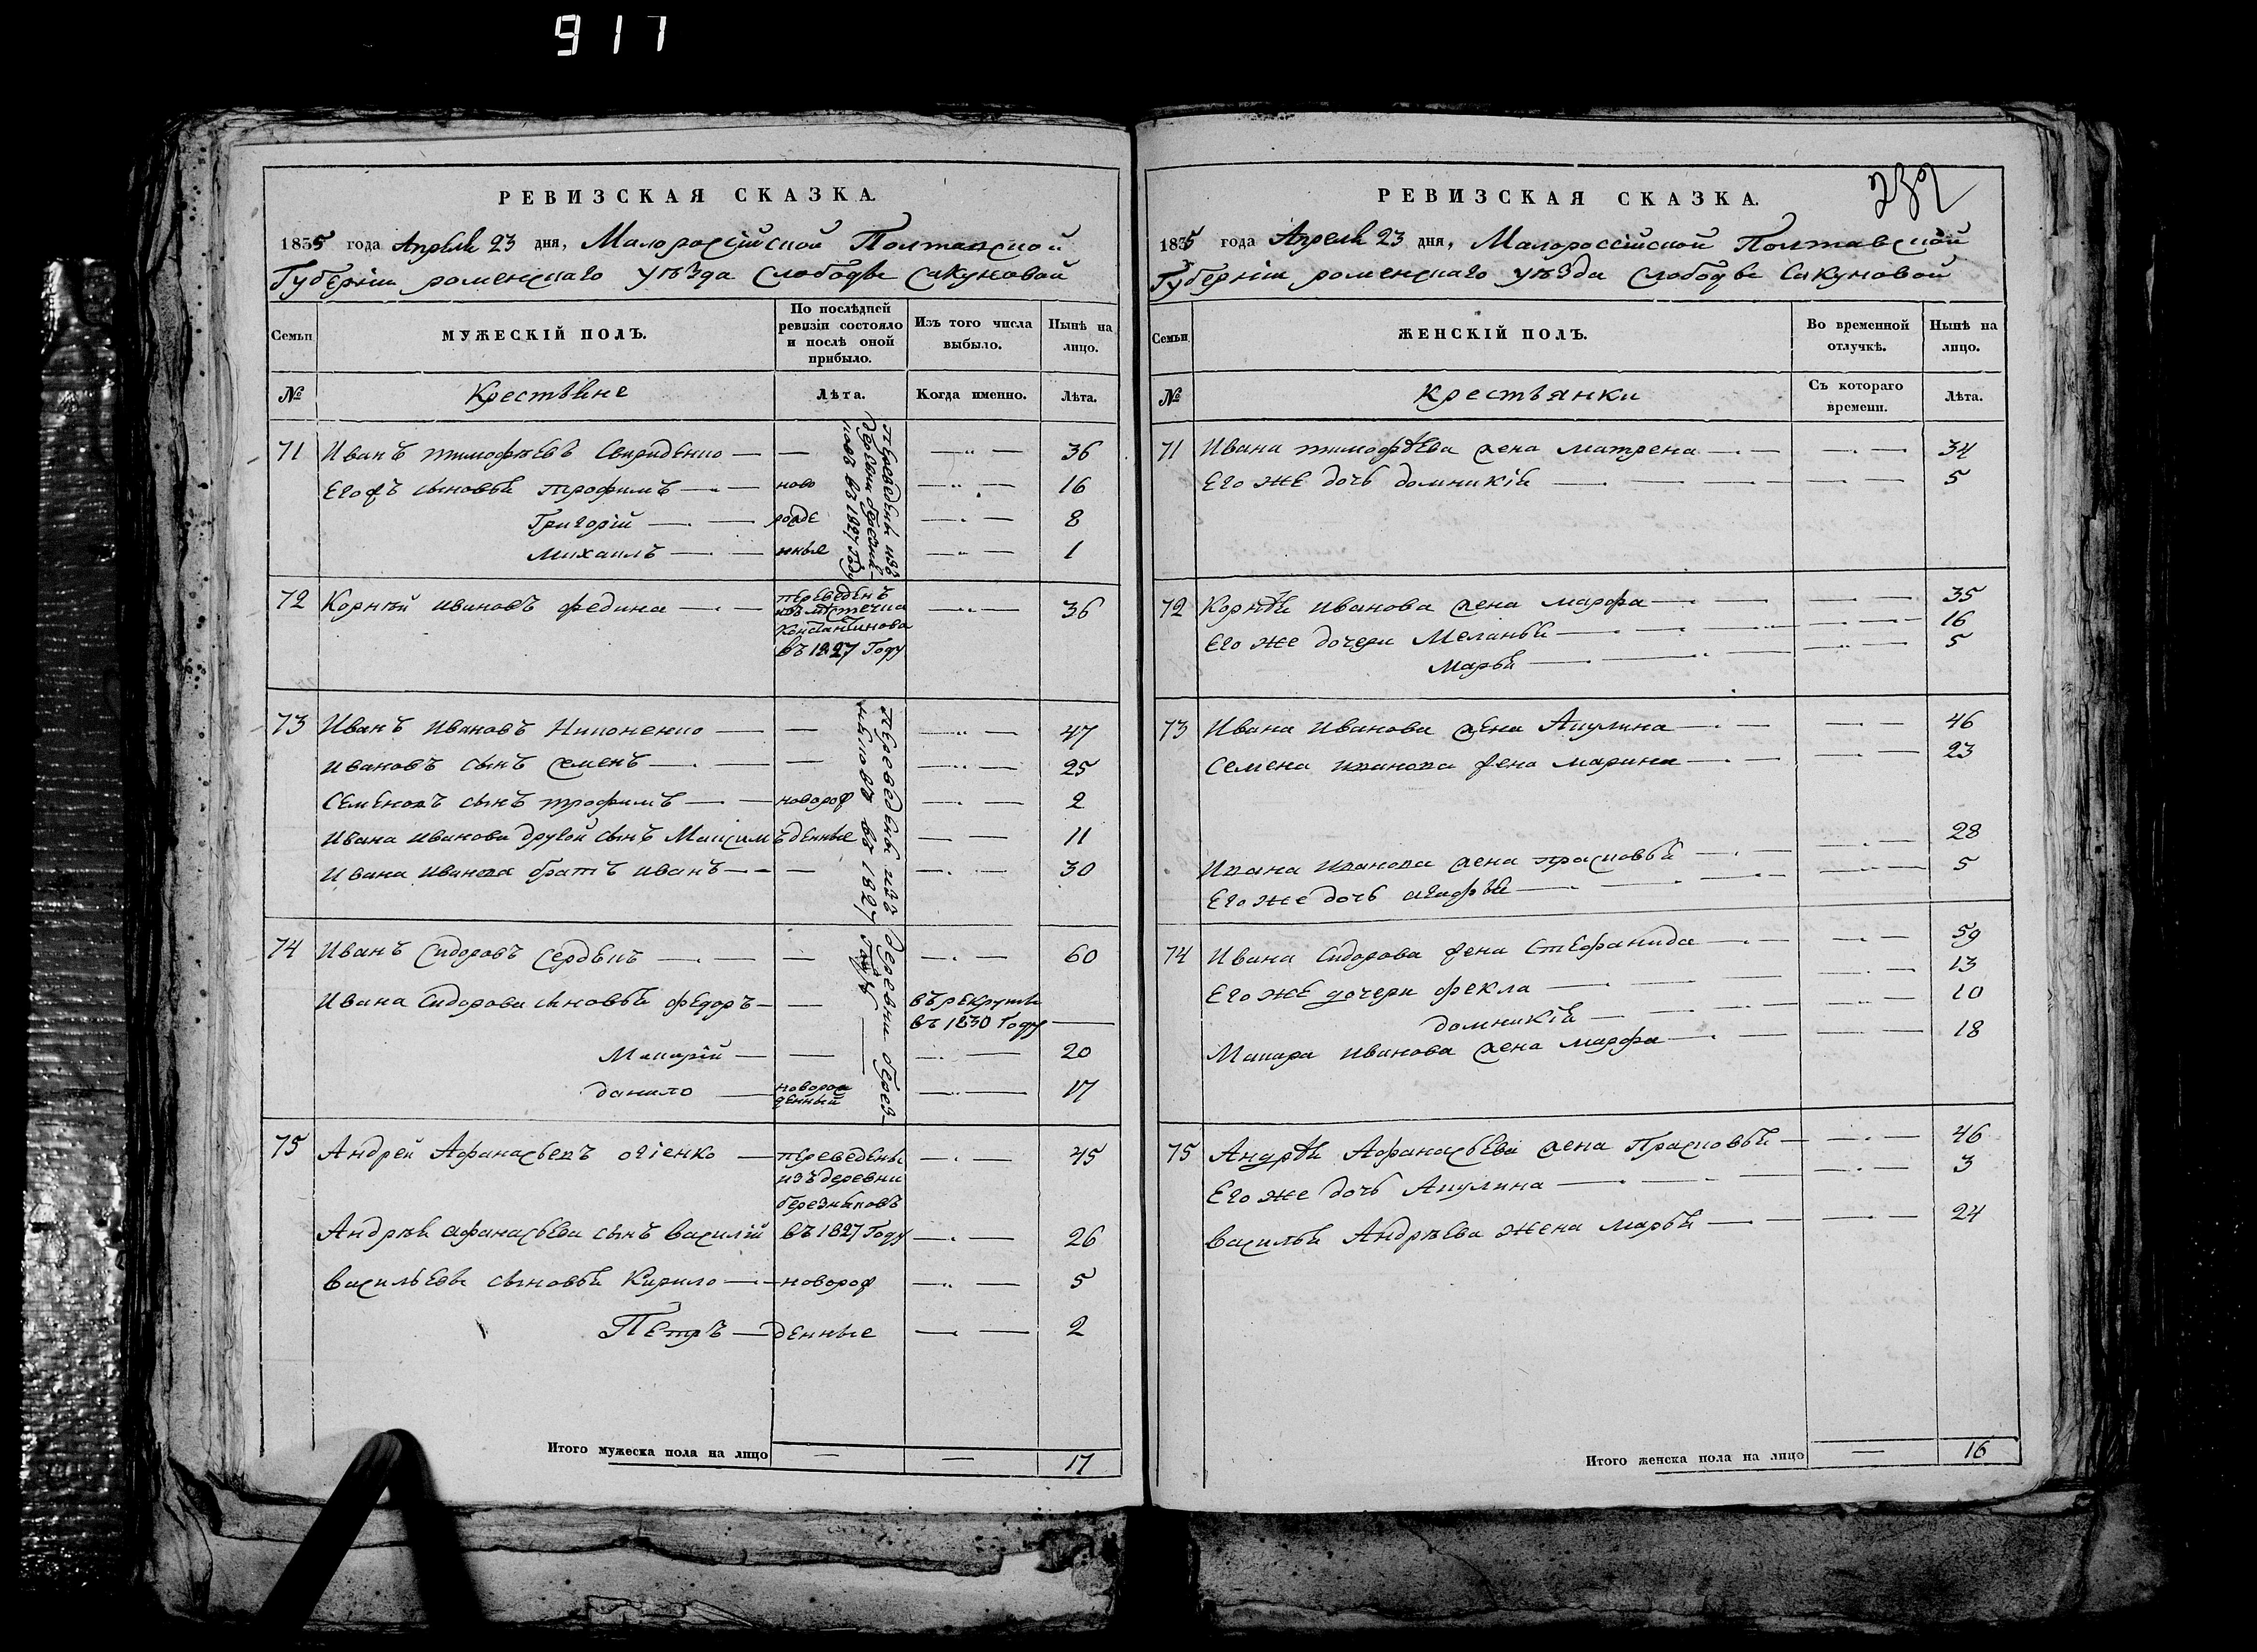 917
РЕВИЗСКАЯ СКАЗКА.
1835 года Апреля 23 дня, Малоросiйской Полтавской
Губернiи роменскаго уѣзда слободы сакуновой
Семьи
МУЖЕСКIЙ ПОЛЪ.
По послѣдней ревизiи состояло и послѣ оной прибыло.
Изъ того числа выбыло.
Нынѣ на лицо.
№
Крестьяне
Лѣта.
Когда именно.
Лѣта.
71 Иванъ тимофѣевъ Свириденко — — — 36
Его жъ сыновья трофимъ — ново — 16
Григорiй — рожде — 8
Михаилъ — нные — 1
Переведены изъ
деревни березня-
ковъ въ 1827 Году
72 Корнѣй ивановъ федина — переведенъ — 36
изъ мѣстечка
Константинова
въ 1827 Году
73 Иванъ Ивановъ Никоненко — — — 47
Ивановъ сынъ семенъ — — — 25
Семеновъ сынъ трофимъ — новорож — 2
Ивана Иванова другой сынъ Максимъ денные — 11
Ивана Иванова братъ иванъ — — — 30
Переведены изъ деревни берез-
няковъ въ 1827 Году
74 Иванъ Сидоровъ Сердюкъ — — — 60
Ивана Сидорова сыновья федоръ — — въ рекруты
въ 1830 Году —
Макарiй — — — 20
данило — новорож
денный — 17
75 Андрей Афанасьевъ огiенко — переведены — 45
изъ деревни
березняковъ
Андрѣя афанасьева сынъ василiй въ 1827 Году — 26
васильевы сыновья Кирило — новорож — 5
Петръ — денные — 2
Итого мужеска пола на лицо — — 17
232
РЕВИЗСКАЯ СКАЗКА.
1835 года Апреля 23 дня, Малороссiйской Полтавской
Губернiи роменскаго уѣзда слободы Сакуновой
Семьи
ЖЕНСКIЙ ПОЛЪ.
Во временной отлучкѣ.
Нынѣ на лицо.
№
крестьянки
Съ котораго времени.
Лѣта.
71 Ивана тимофѣева жена матрена — — 34
Его же дочь домникiя — — 5
72 Корнѣя иванова жена марфа — — 35
Его же дочери Меланья — — 16
Марья — — 5
73 Ивана Иванова жена Акулина — — 46
Семена иванова жена марина — — 23
Ивана иванова жена прасковья — — 28
Его же дочь агафья — — 5
74 Ивана Сидорова жена Стефанида — — 59
Его же дочери фекла — — 13
домникiя — — 10
Макара иванова жена марфа — — 18
75 Андрѣя Афанасьева жена Прасковья — — 46
Его же дочь Акулина — — 3
василья Андрѣева жена марья — — 24
Итого женска пола на лицо — 16